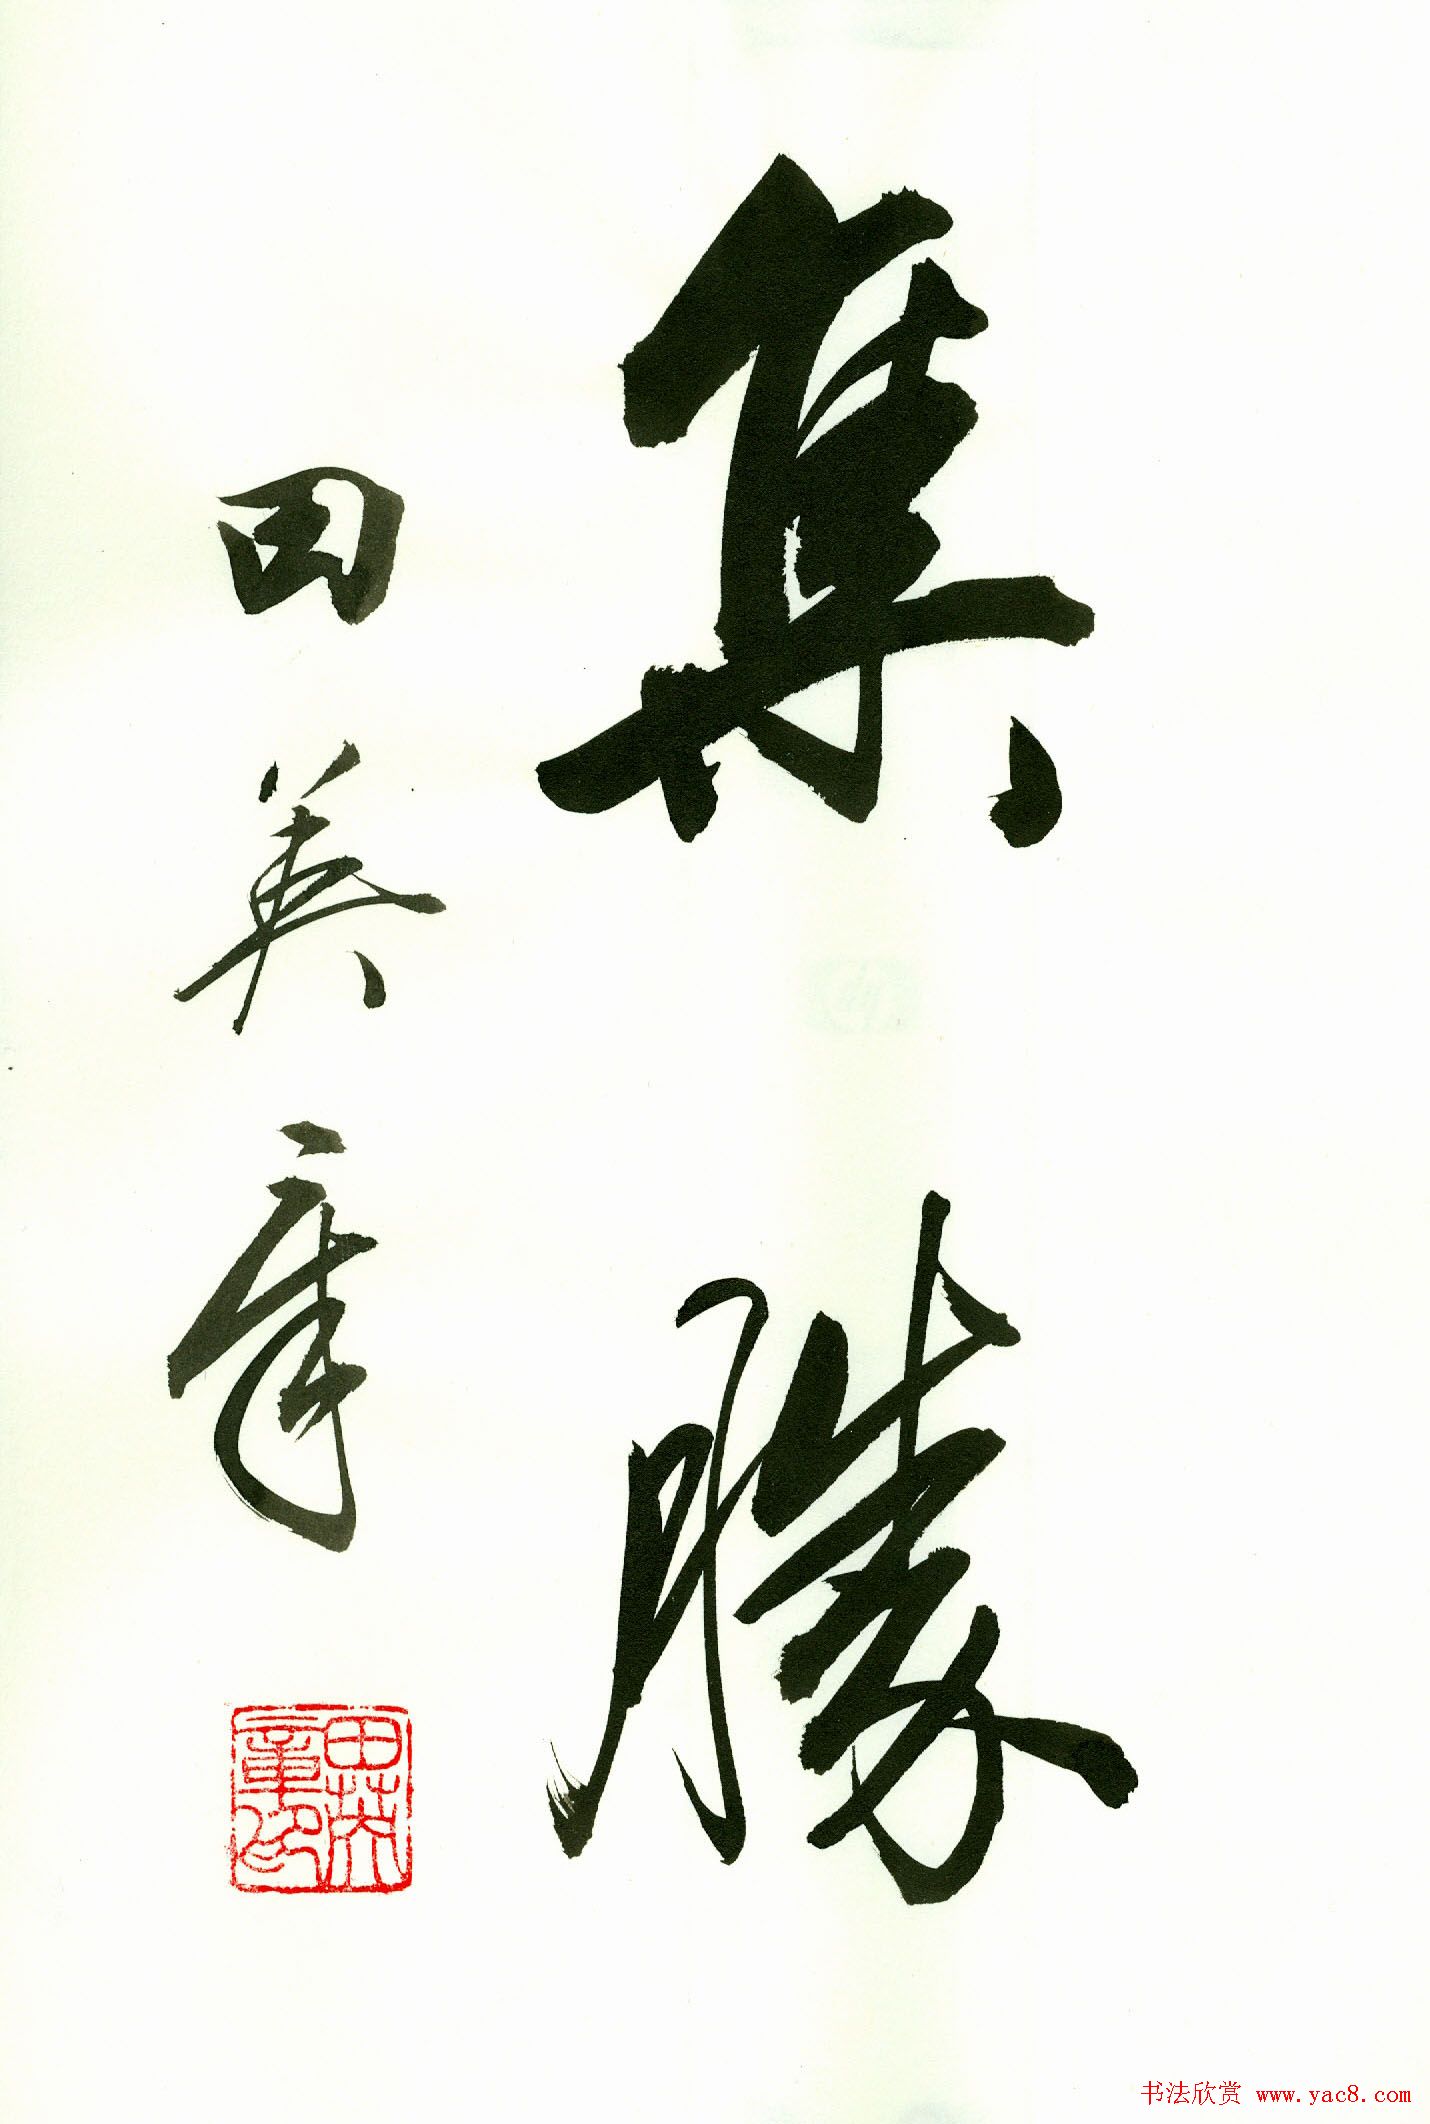 集勝
田英章
田英章印
书法欣赏 www.yac8.com